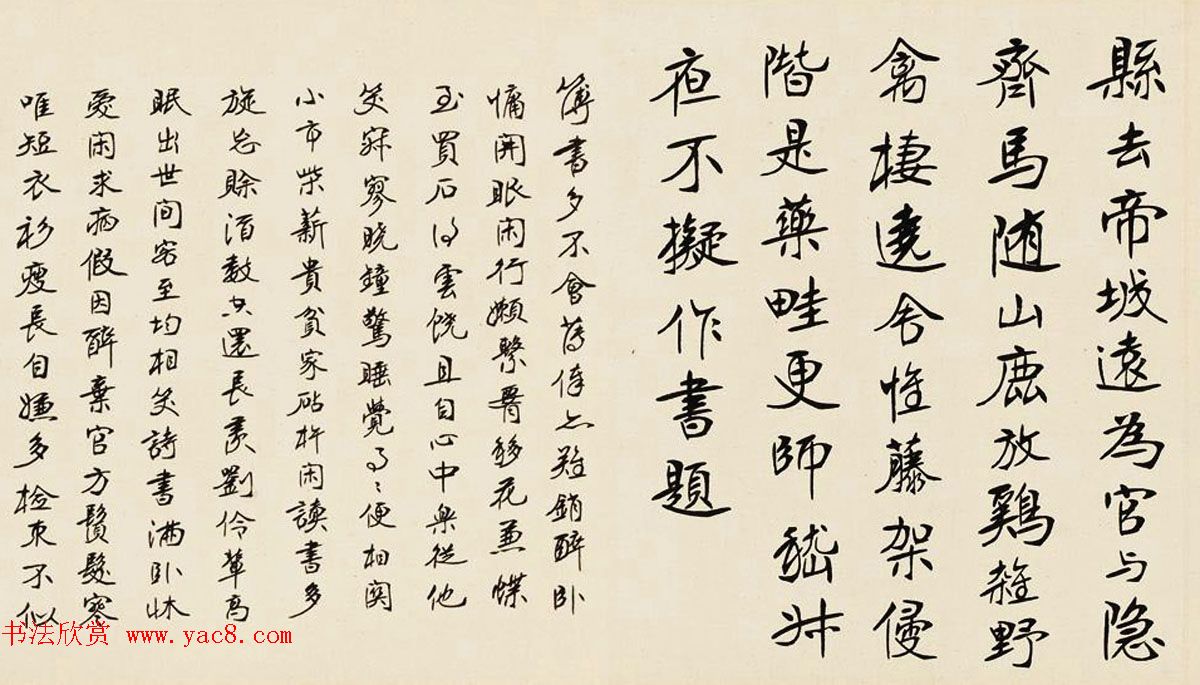 縣去帝城遠為官与隐
齊馬随山鹿放鷄雜野
禽棲遶舍惟藤架侵
階是藥畦更師嵇叔
夜不擬作書題
簿書多不會薄俸亦難銷醉卧
慵開眼闲行嬾繫腰移花兼蝶
至買石得雲饒且自心中樂從他
笑寂寥曉鐘驚睡覺事〻便相関
小市柴薪貴貧家砧杵闲讀書多
旋忘賒酒數空還長羨劉伶輩高
眠出世間客至均相笑詩書滿卧牀
愛闲求病假因醉棄官方鬢髮寒
唯短衣衫瘦長自嫌多檢束不似
书法欣赏 www.yac8.com